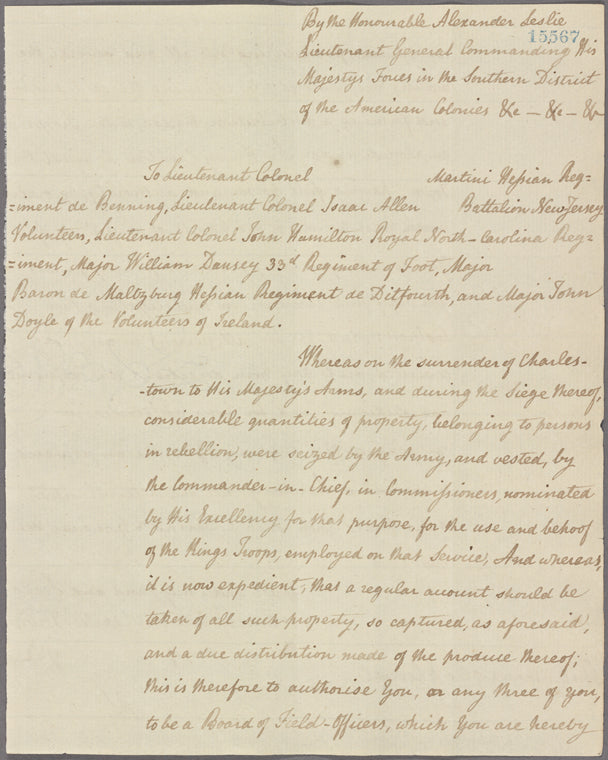 By the Honourable Alexander Leslie
15567
Lieutenant General Commanding His
Majestys Forces in the Southern District
of the American Colonies &c — &c — &c
To Lieutenant Colonel Martini Hessian Reg=
=iment de Benning, Lieutenant Colonel Isaac Allen Battalion New Jersey
Volunteers, Lieutenant Colonel John Hamilton Royal North-Carolina Reg=
=iment, Major William Dansey 33d Regiment of Foot, Major
Baron de Maltzburg Hessian Regiment de Ditfourth, and Major John
Doyle of the Volunteers of Ireland.
Whereas on the surrender of Charles-
-town to His Majesty's Arms, and during the Siege thereof,
considerable quantities of property, belonging to persons
in rebellion, were seized by the Army, and vested, by
the Commander-in-Chief, in Commissioners, nominated
by His Excellency for that purpose, for the use and behoof
of the Kings Troops, employed on that Service, And whereas,
it is now expedient, that a regular account should be
taken of all such property, so captured, as aforesaid,
and a due distribution made of the produce thereof;
this is therefore to authorise You, or any three of you,
to be a Board of Field-Officers, which You are hereby